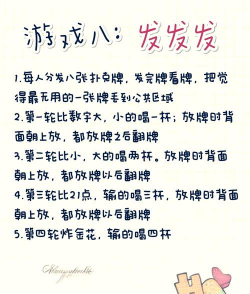 游戏八：发发发
1.每人分发八张扑克牌，发完牌看牌，把觉
得最无用的一张牌丢到公共区域
2.第一轮比数字大，小的喝一杯；放牌时背
面朝上放，都放牌之后翻牌
3.第二轮比小，大的喝两杯。放牌时背面
朝上放，都放牌以后翻牌
4.第三轮比21点，输的喝三杯，放牌时背面
朝上放，都放牌以后翻牌
5.第四轮炸金花，输的喝四杯